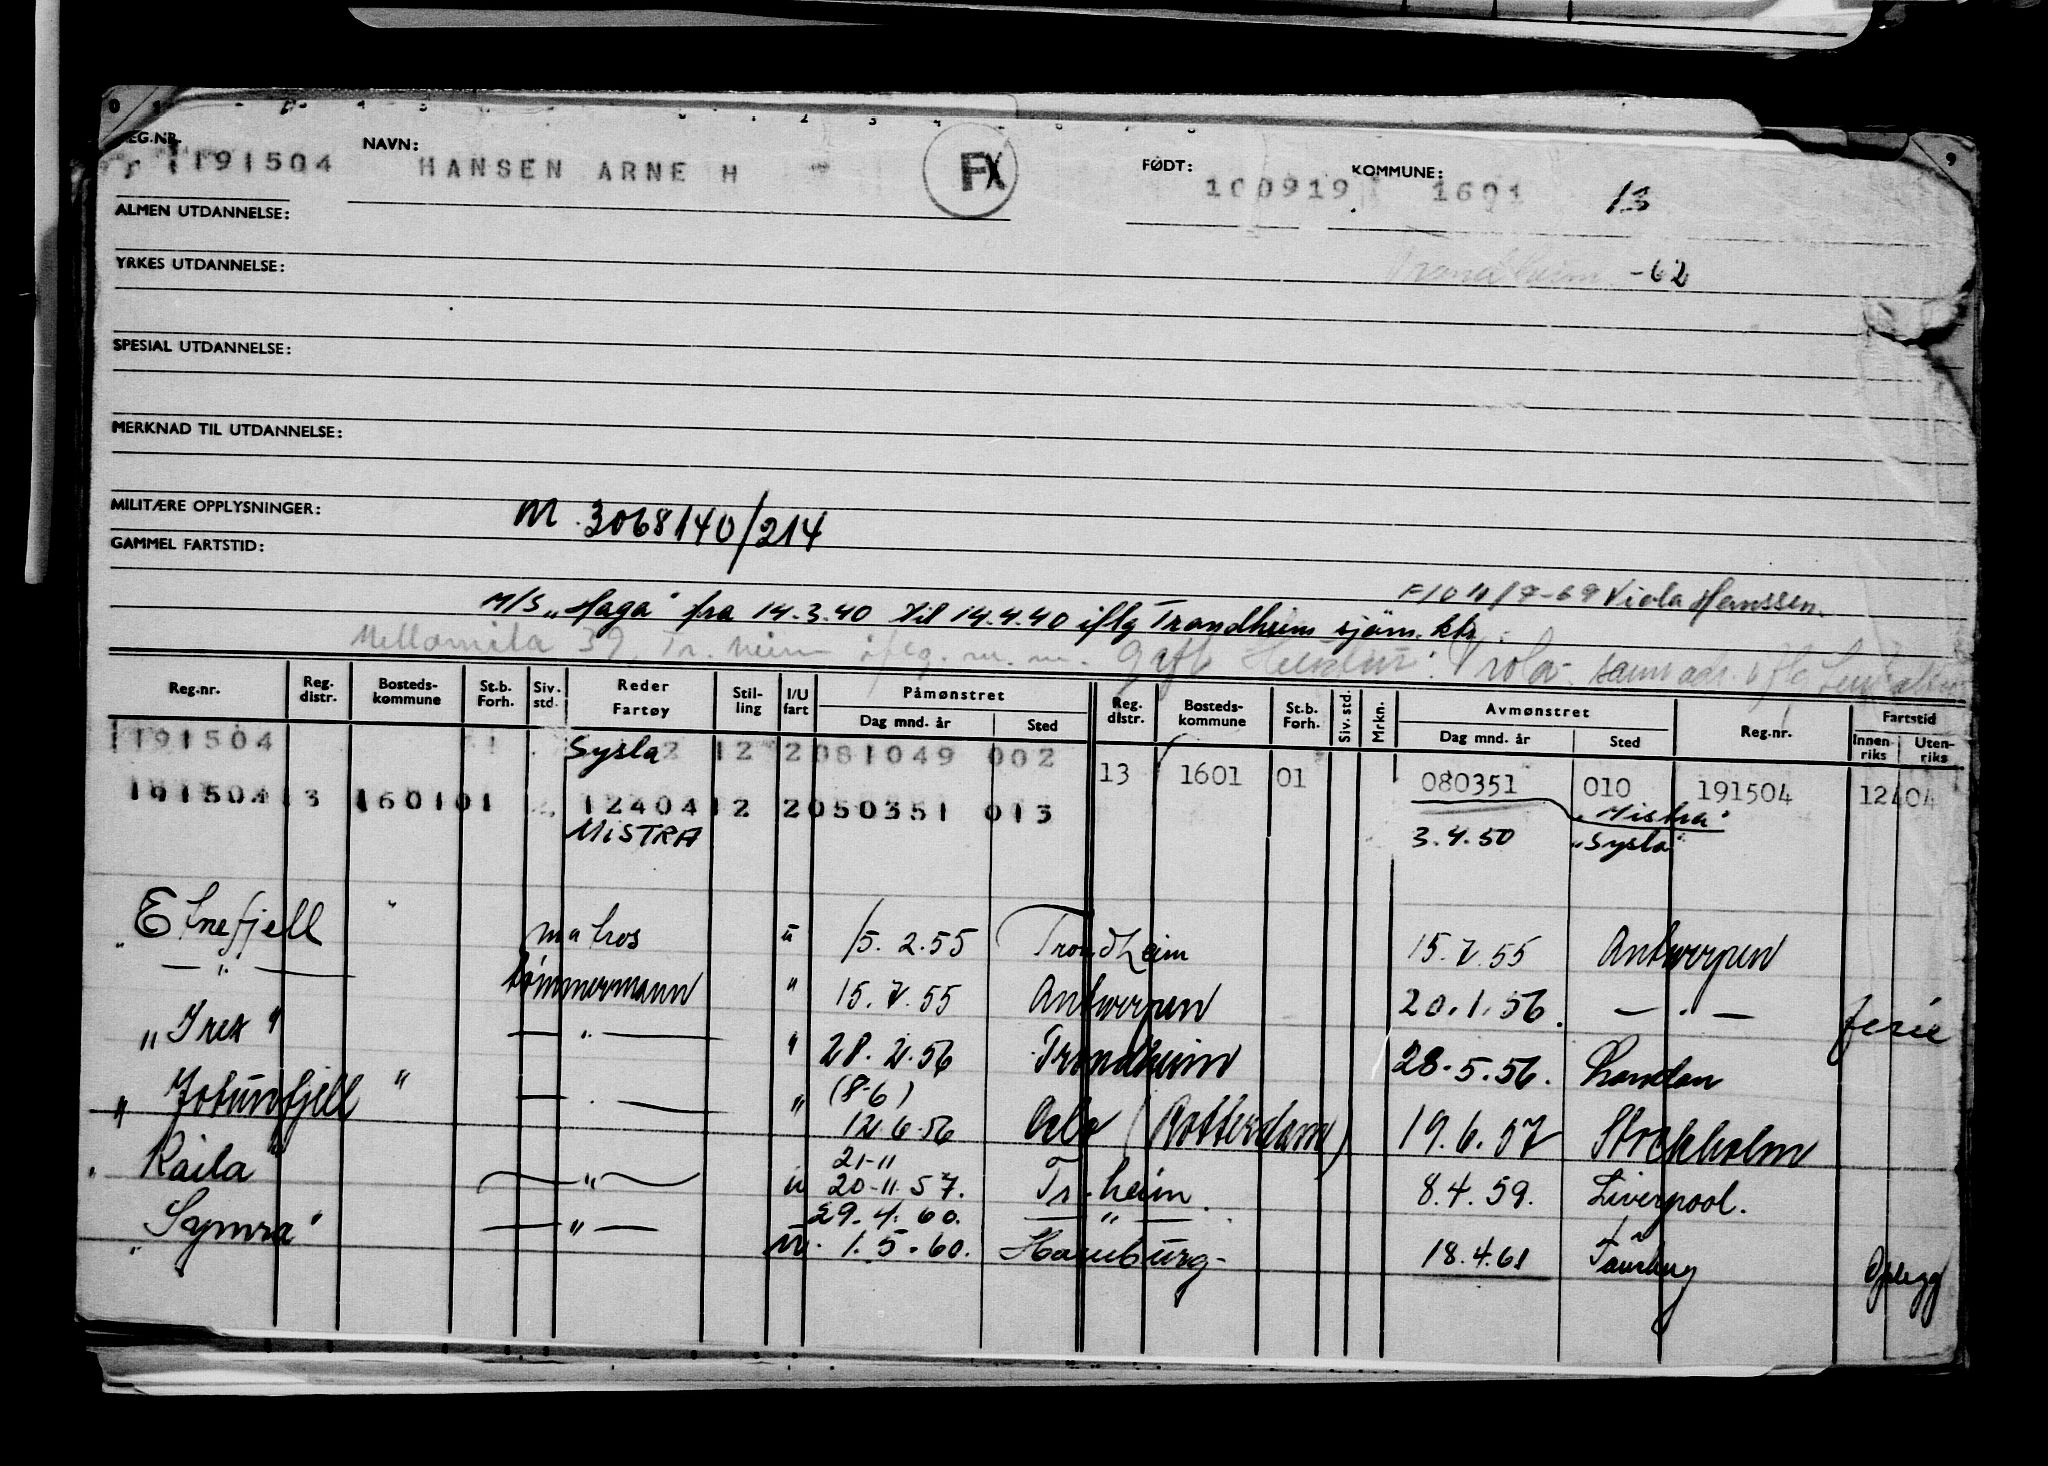 REG.NR. NAVN: FØDT: KOMMUNE:
191504 HANSEN ARNE H FX 100919 1601 13
ALMEN UTDANNELSE:
YRKES UTDANNELSE: Trondheim -62
SPESIAL UTDANNELSE:
MERKNAD TIL UTDANNELSE:
MILITÆRE OPPLYSNINGER: M. 3068140/214
GAMMEL FARTSTID:
Viola Hanssen.
M/S „Haga" fra 14.3.40 til 14.4.40 iflg Trondheim sjøm. ktr.
Mellomila 39, Tr.heim iflg. m.m. gift Viola
Reg.nr. Reg. distr. Bosteds-kommune St.b. Forh. Siv. std. Reder Fartøy Stil-ling I/U fart Påmønstret Dag mnd. år Sted Reg. distr. Bosteds-kommune St.b. Forh. Siv. std. Mrkn. Avmønstret Dag mnd. år Sted Reg.nr. Fartstid Innen-riks Uten-riks
191504 1 Sysla 2 12 2 081049 002
13 1601 01 080351 010 191504 12404
191504 13 1601 01 12404 12 2 050351 013 „Mistra"
MISTRA 3.4.50 „Sysla"
„Etnefjell " matros u 15.2.55 Trondheim 15.7.55 Antwerpen
— " — tømmermann " 15.7.55 Antwerpen 20.1.56. — " — ferie
„Irex" — " — " 28.2.56 Trondheim 28.5.56. London
„Jotunfjell " — " — " (8-6) 12.6.56 Oslo (Rotterdam) 19.6.57 Stockholm
„Raila" — " — u 21-11 20-11.57. Tr.heim. 8.4.59. Liverpool.
„Symra" — " — 29.4.60. — " —
u. 1.5.60. Hamburg 18.4.61 Opplegg